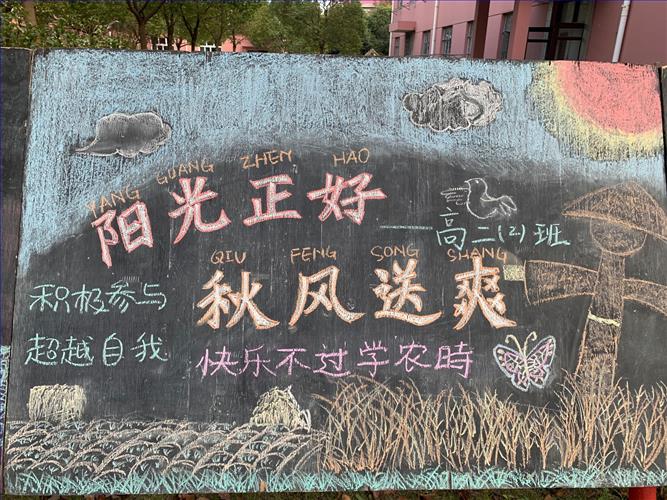 YANG GUANG ZHEN HAO
阳光正好
高二(2)班
QIU FENG SONG SHANG
秋风送爽
积极参与
超越自我
快乐不过学农時